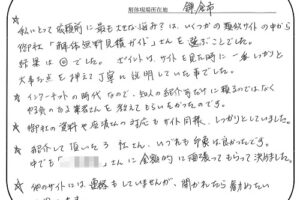 解体現場所在地 鎌倉市
☆ 私にとって依頼前に最も大きな悩みは、いくつかの類似サイトの中から
御社「解体無料見積ガイド」さんを選ぶことでした。
結果は◎でした。ポイントは、サイトを見た時に一番しっかりと
大事な点を押えて丁寧に説明していた事でした。
☆ インターネットの時代なので、知人の紹介だけに頼るのではなく
やる気のある業者さんを教えてもらいたかったのです。
☆ 御社の資料や担当さんの対応もサイト同様、しっかりとしていました。
☆ 紹介して頂いた3社さん、いづれも印象は良かったです。
中でも さんに金額的に頑張ってもらって決めました。
☆ 他のサイトには電話もしていませんが、聞かれたら勧めたい